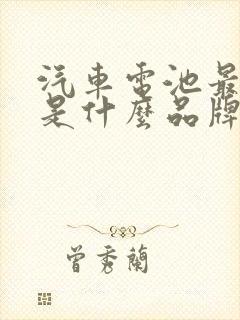 汽車電池最
是什麼品牌
曾秀蘭